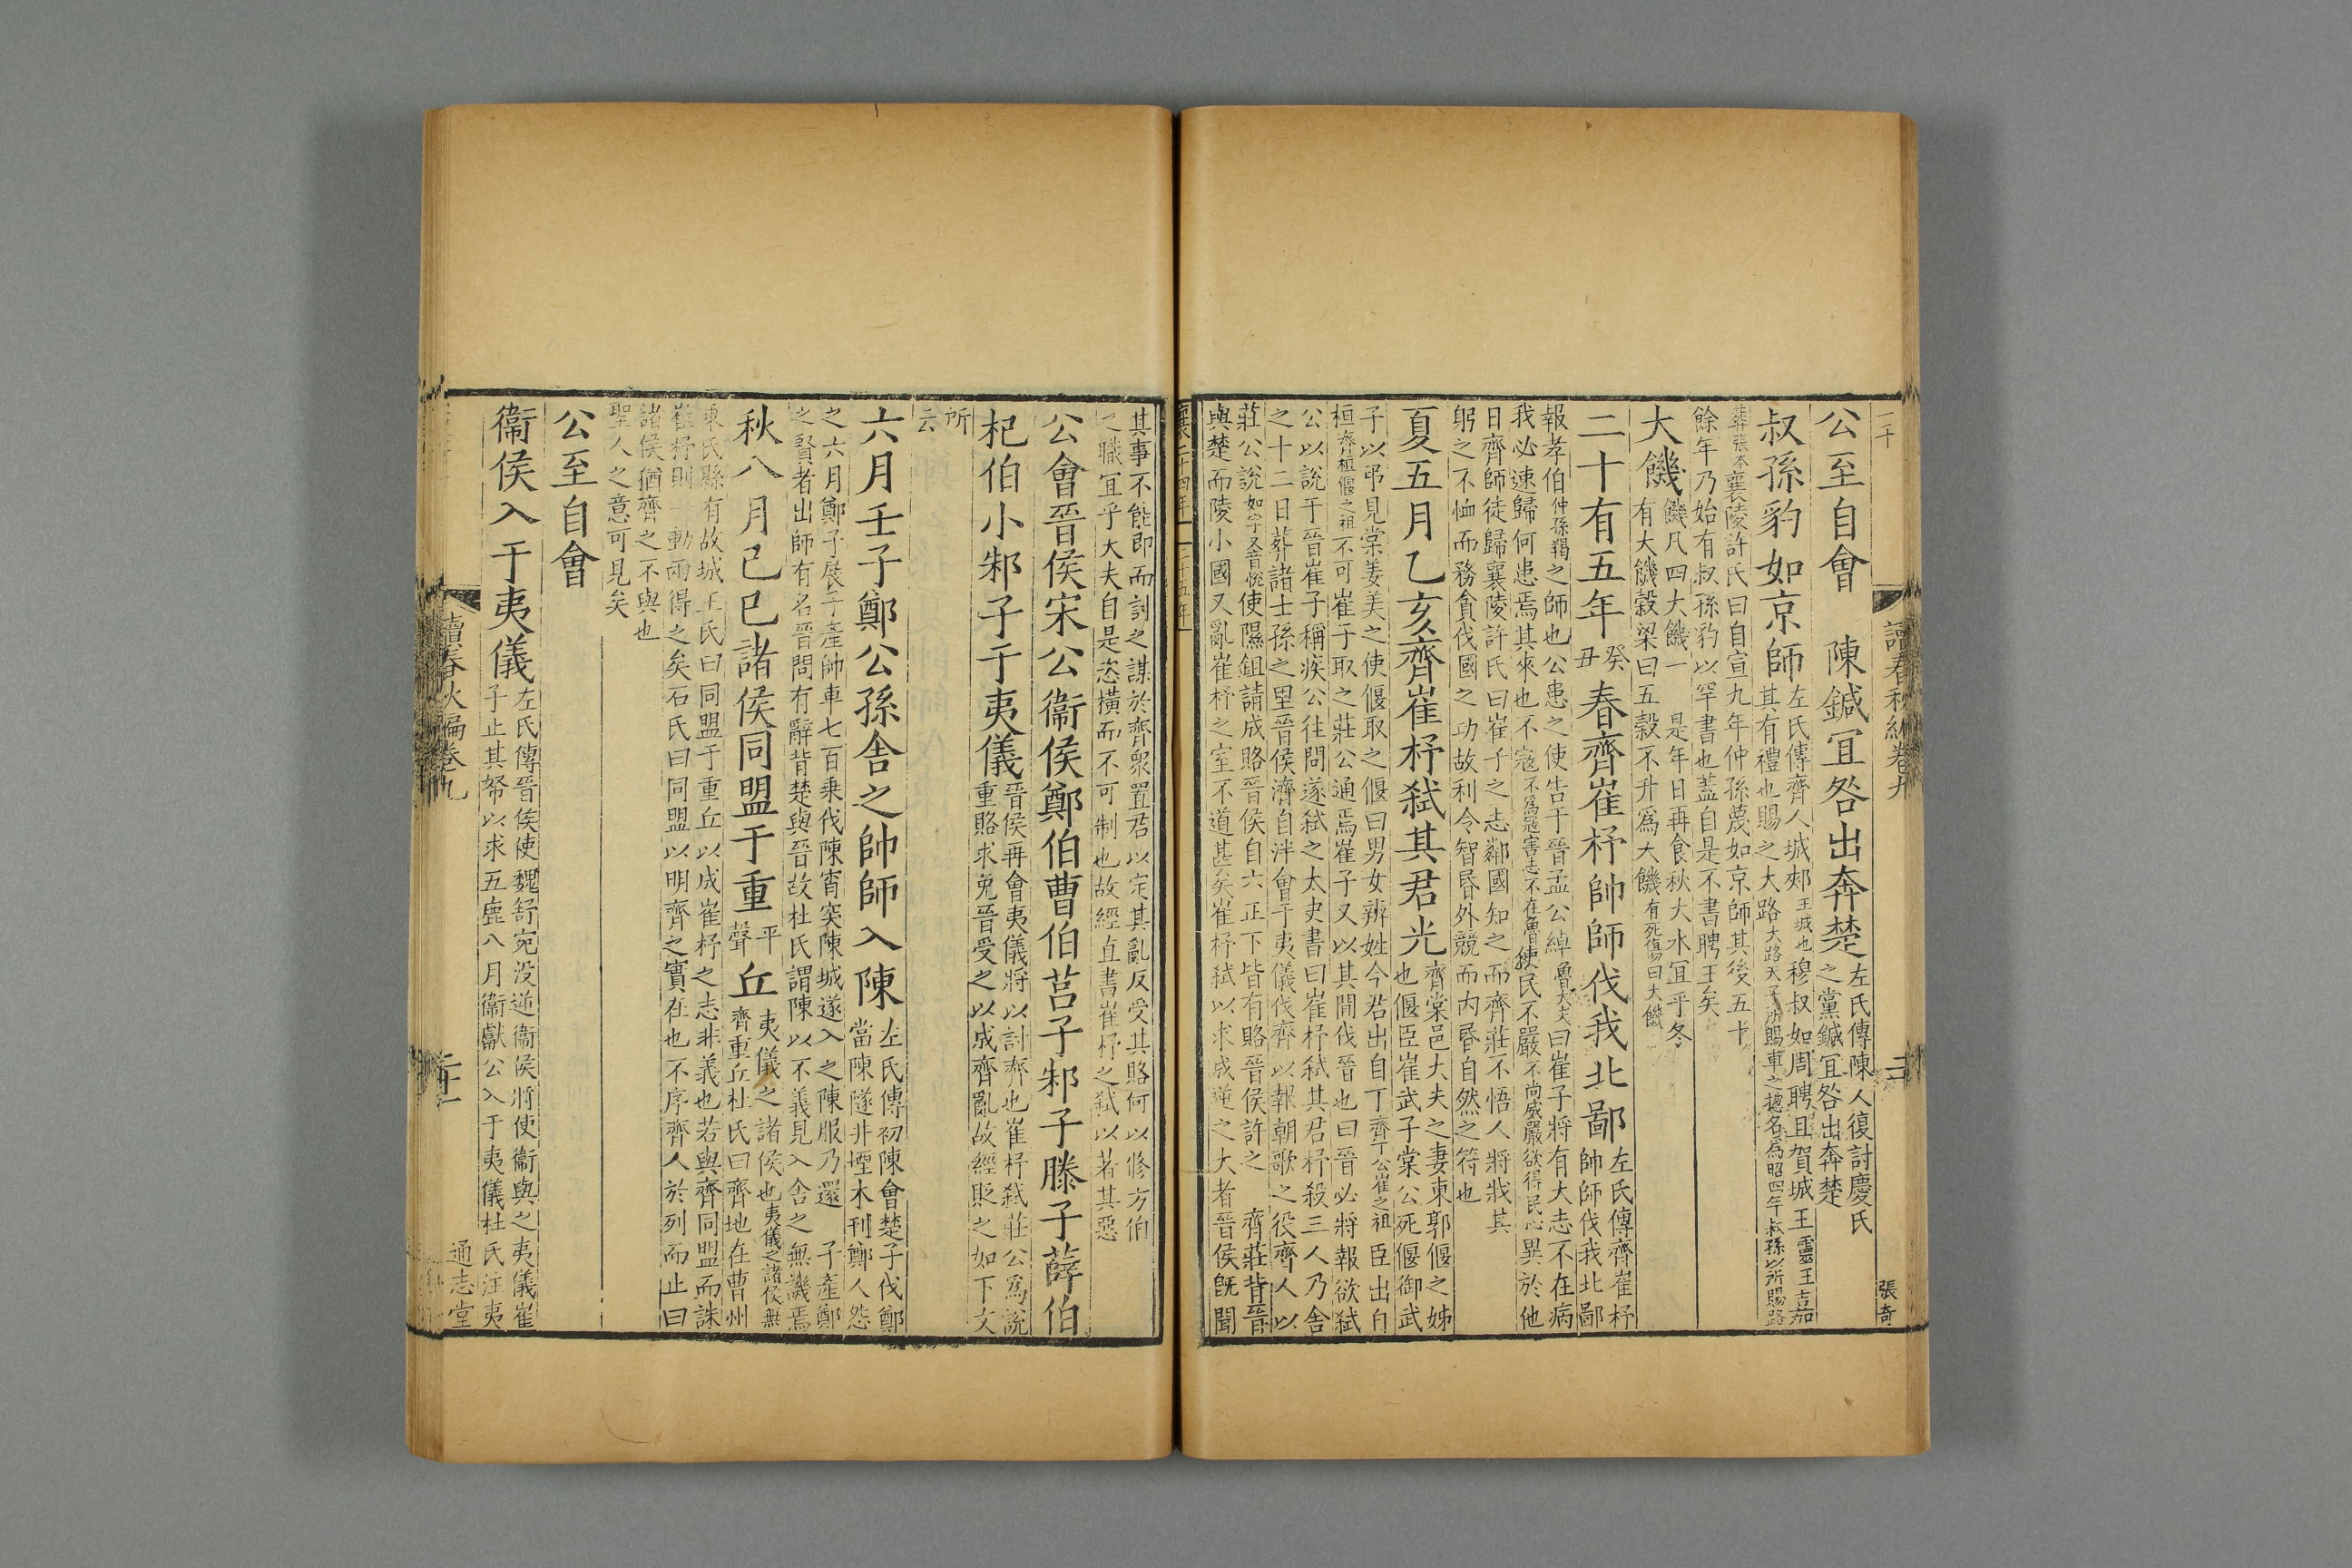 公至自會　陳鍼宜咎出奔楚左氏傳陳人復討慶氏之黨鍼宜咎出奔楚
叔孫豹如京師左氏傳齊人城郟王城也穆叔如周聘且賀城王靈王嘉其有禮也賜之大路大路天子所賜車之摠名爲昭四年叔孫以所賜路
葬張本襄陵許氏曰自宣九年仲孫蔑如京師其後五十餘年乃始有叔孫豹以罕書也蓋自是不書聘王矣
大饑饑凡四大饑一　是年日再食秋大水宜乎冬有大饑穀梁曰五穀不升爲大饑有死傷曰大饑
二十有五年癸丑春齊崔杼帥師伐我北鄙左氏傳齊崔杼帥師伐我北鄙
報孝伯仲孫羯之師也公患之使告于晉孟公綽魯大夫曰崔子將有大志不在病我必速歸何患焉其來也不寇不爲寇害志不在魯使民不嚴不尚威嚴欲得民心異於他
日齊師徒歸襄陵許氏曰崔子之志鄰國知之而齊莊不悟人將戕其躬之不恤而務貪伐國之功故利令智昏外競而內昏自然之符也
夏五月乙亥齊崔杼弒其君光齊棠邑大夫之妻東郭偃之姊也偃臣崔武子棠公死偃御武
子以弔見棠姜美之使偃取之偃曰男女辨姓今君出自丁齊丁公崔之祖臣出自桓齊桓偃之祖不可崔子取之莊公通焉崔子又以其間伐晉也曰晉必將報欲弒
公以說于晉崔子稱疾公往問遂弒之太史書曰崔杼弒其君杼殺三人乃舍之十二日葬諸士孫之里晉侯濟自泮會于夷儀伐齊以報朝歌之役齊人以
莊公說如字又音悅使隰鉏請成賂晉侯自六正下皆有賂晉侯許之　齊莊背晉與楚而陵小國又亂崔杼之室不道甚矣崔杼弒以求成逆之大者晉侯旣聞
其事不能即而討之謀於齊衆置君以定其亂反受其賂何以修方伯之職宜乎大夫自是恣橫而不可制也故經直書崔杼之弒以著其惡
公會晉侯宋公衞侯鄭伯曹伯莒子邾子滕子薛伯
杞伯小邾子于夷儀晉侯再會夷儀將以討齊也崔杼弒莊公爲說重賂求免晉受之以成齊亂故經貶之如下文
所云
六月壬子鄭公孫舍之帥師入陳左氏傳初陳會楚子伐鄭當陳隧井堙木刊鄭人怨
之六月鄭子展子產帥車七百乘伐陳宵突陳城遂入之陳服乃還　子產鄭之賢者出師有名晉問有辭背楚與晉故杜氏謂陳以不義見入舍之無譏焉
秋八月己巳諸侯同盟于重平聲丘夷儀之諸侯也夷儀之諸侯無齊重丘杜氏曰齊地在曹州
東氏縣有故城王氏曰同盟于重丘以成崔杼之志非義也若與齊同盟而誅崔杼則一動兩得之矣石氏曰同盟以明齊之實在也不序齊人於列而止曰
諸侯猶齊之不與也聖人之意可見矣
公至自會
衞侯入于夷儀左氏傳晉侯使魏舒宛没逆衞侯將使衞與之夷儀崔子止其帑以求五鹿八月衞獻公入于夷儀杜氏注夷
讀春秋編卷九
張奇
讀春秋編卷九
通志堂